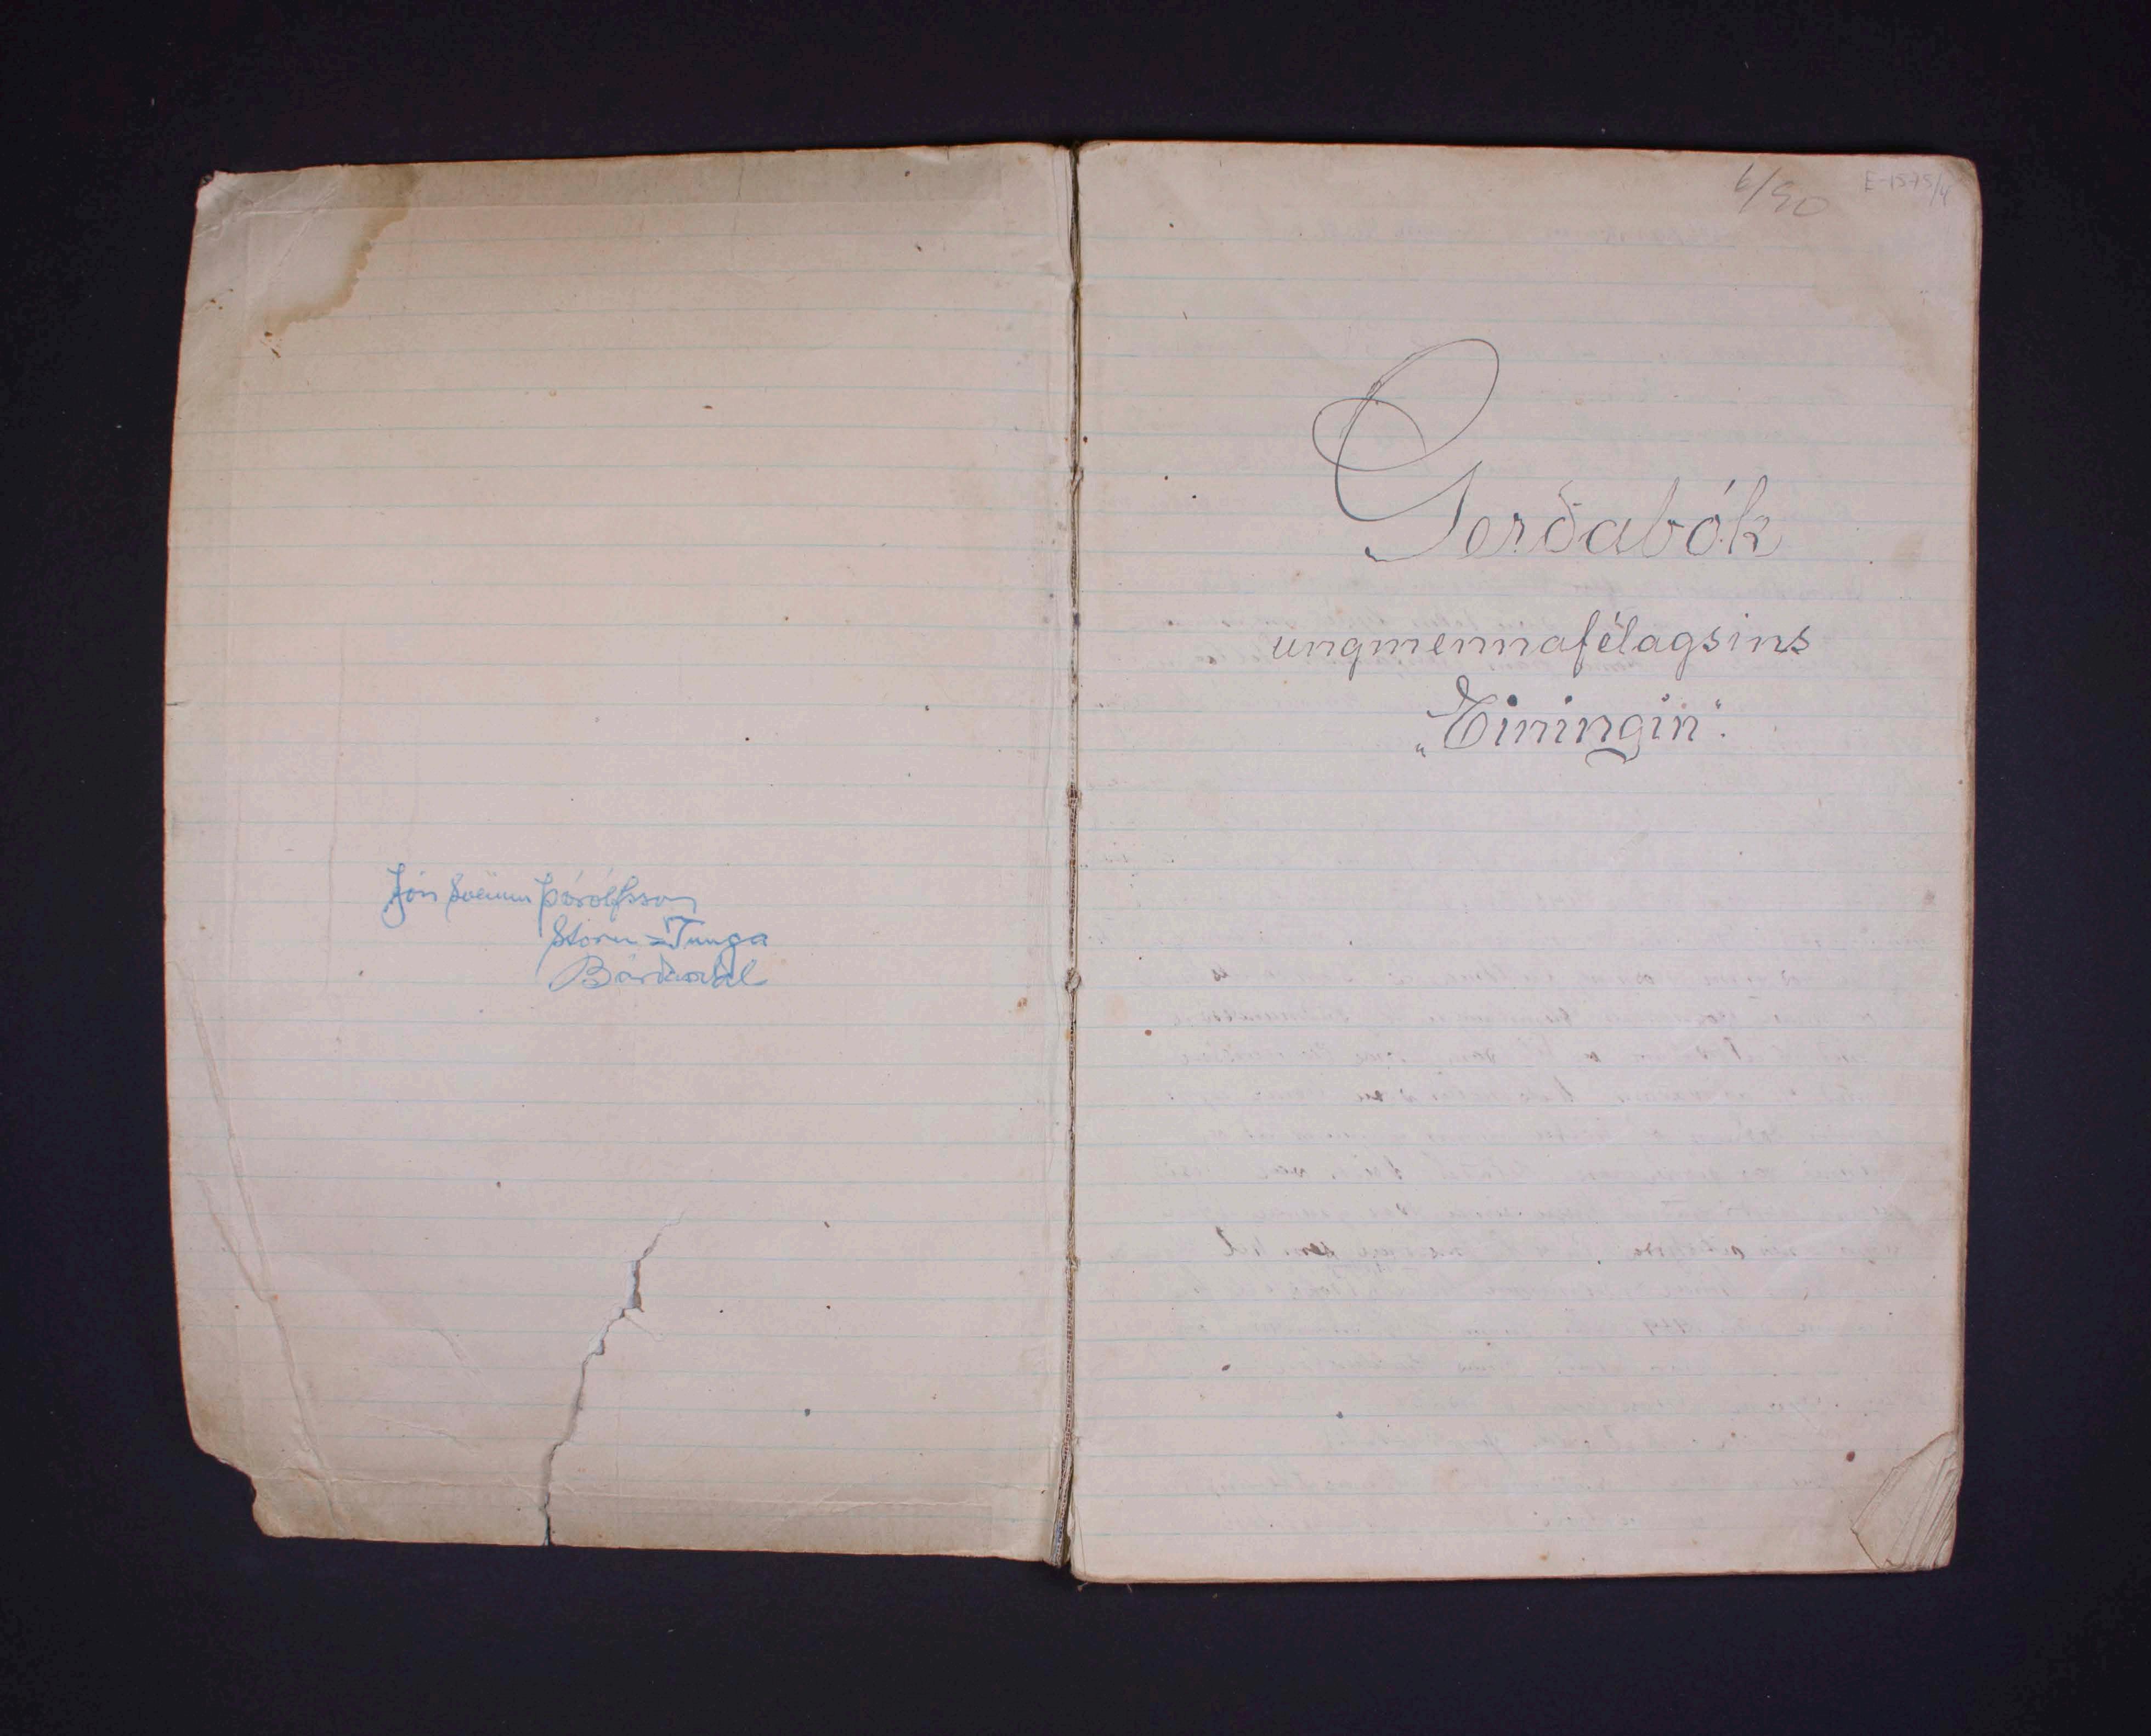 Jón Þórólfsson
Stóru-Tunga
Bárðardal
6/90
E-1575/4
Gerðabók
ungmennafélagsins
„Einingin“.